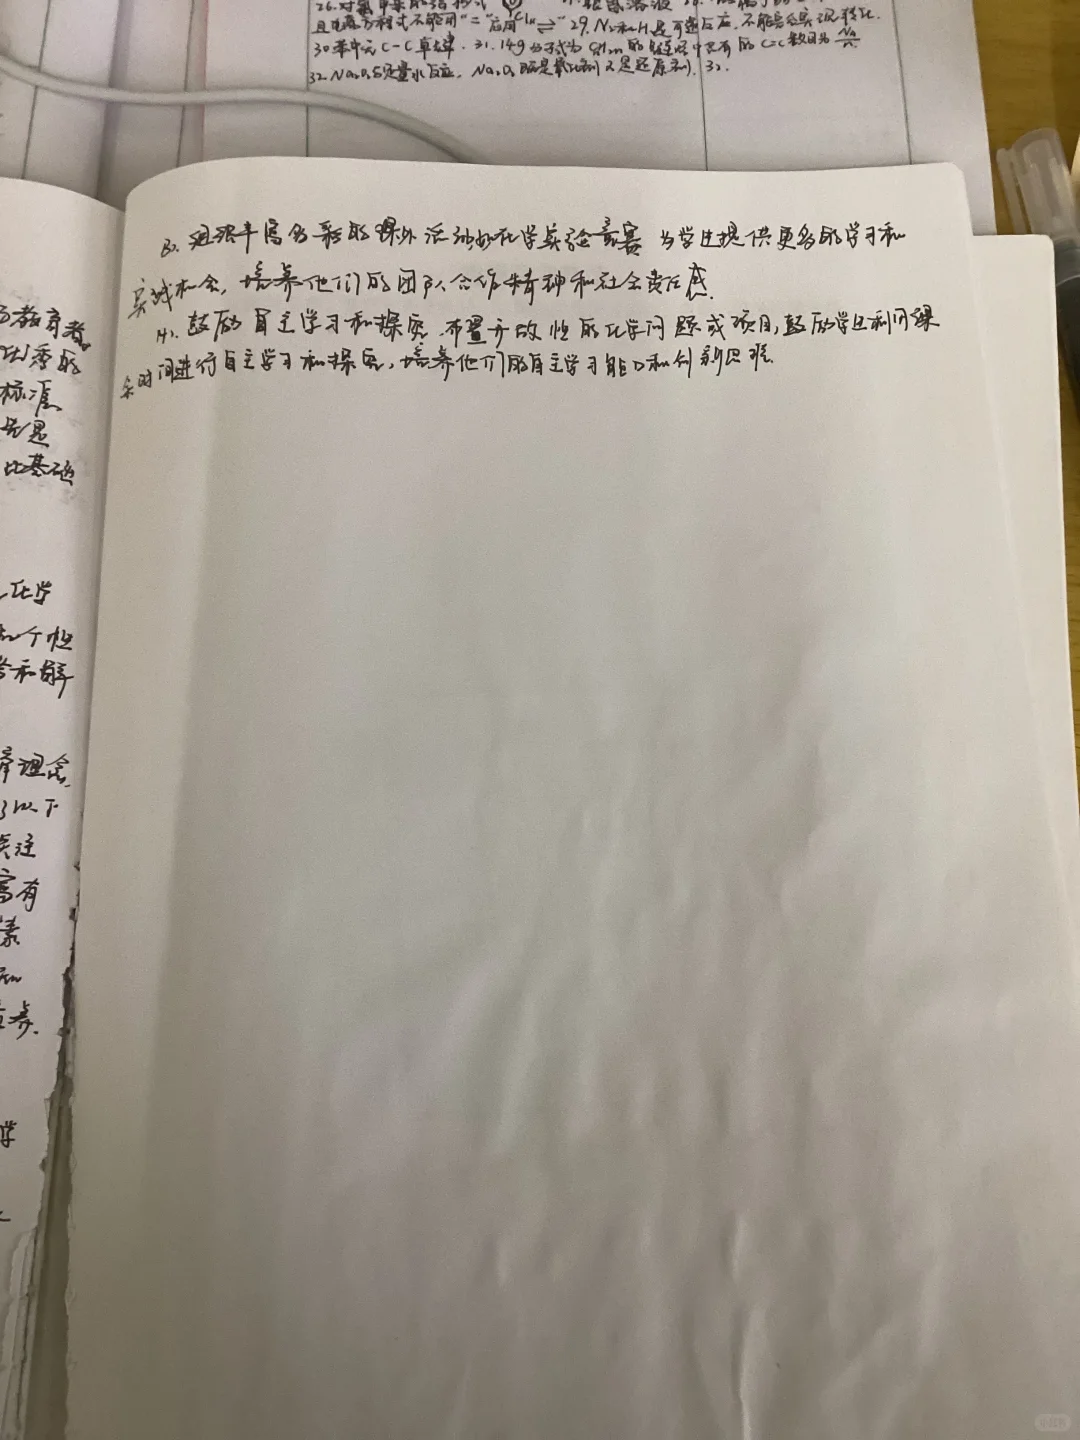 26.对氯甲苯的结构式
且电离方程式不能用"="应用"⇌" 29.N₂和H₂是可逆反应,不能完全实现转化.
30苯中无C-C单键. 31.14g分子式为CnH₂n的链烃中含有的C=C数目为NA/n
32.Na₂O₂与足量水反应, Na₂O₂既是氧化剂又是还原剂. 32.
B. 组织丰富多彩的课外活动如化学实验竞赛 为学生提供更多的学习和
实践机会, 培养他们的团队合作精神和社会责任感.
H. 鼓励自主学习和探究 布置开放性的化学问题或项目, 鼓励学生利用课
余时间进行自主学习和探究, 培养他们的自主学习能力和创新思维.
教育者
的
标准
先是
比基础
化学
和个性
和解
理念
以下
关注
富有
素
和
养.
学